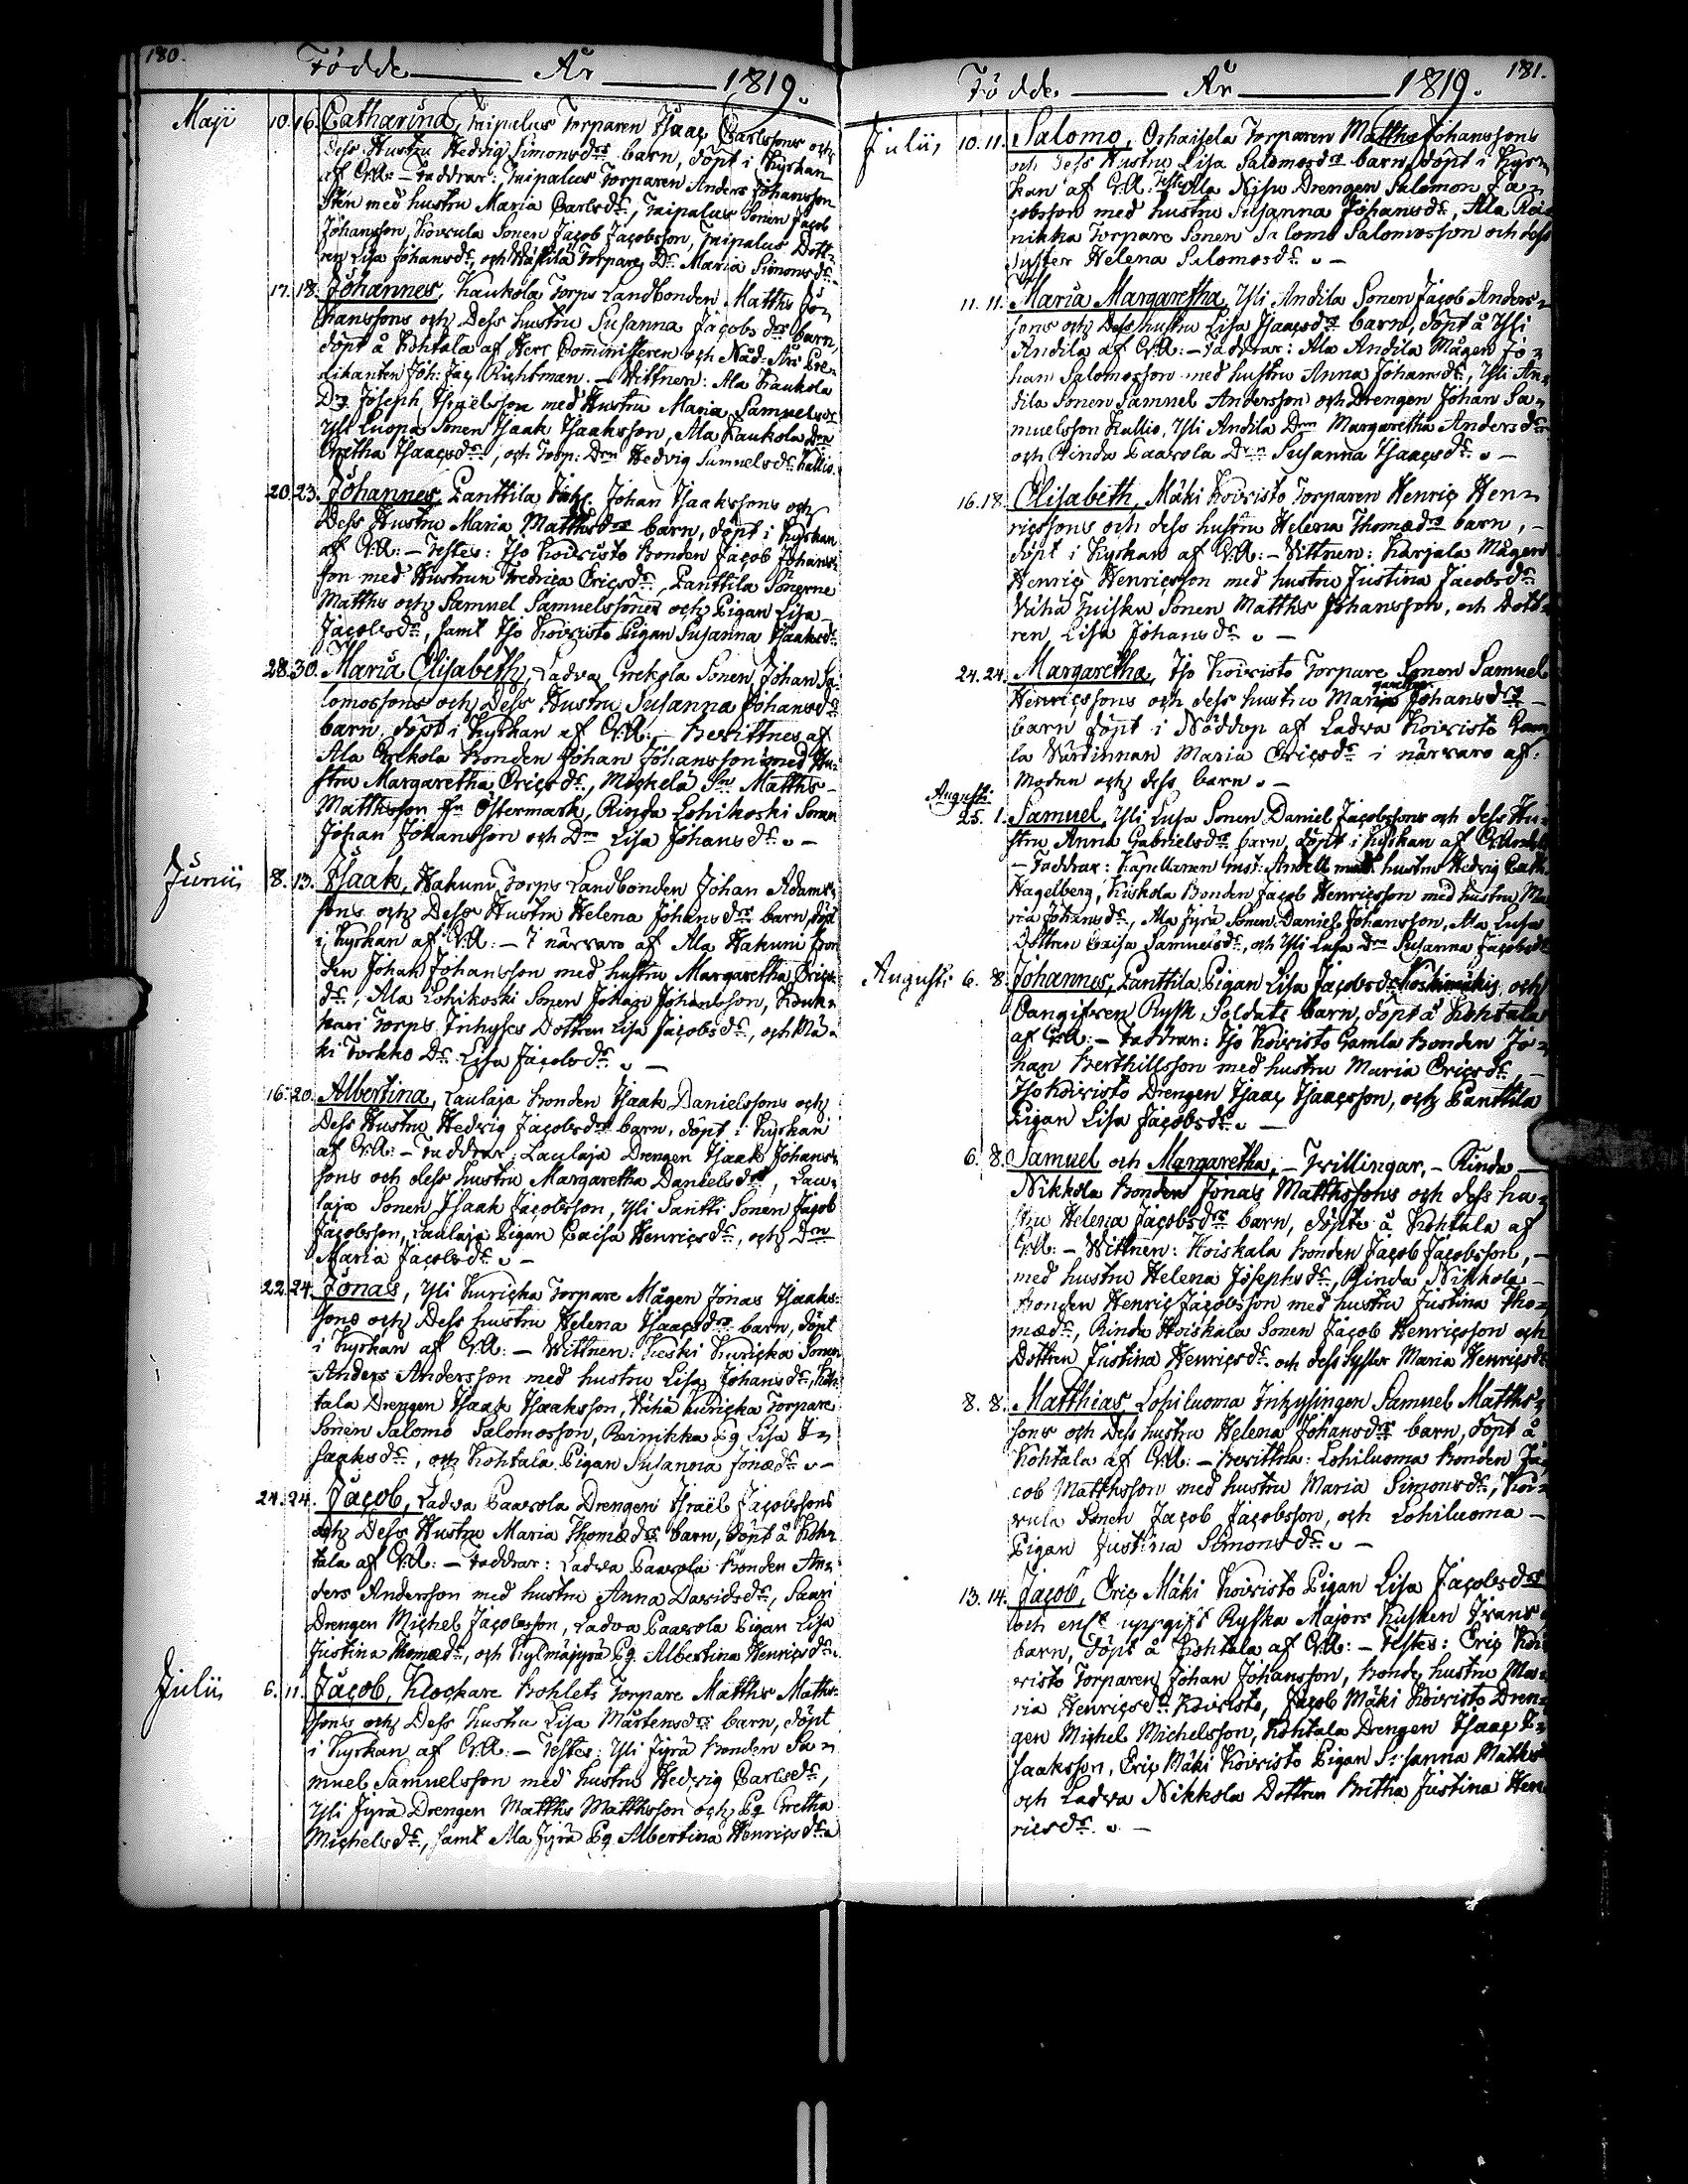 180.
Födde År 1819.
Maji 10. 16. Catharina, Taipalus Torparen Isaac Carlssons och
dess Hustru Hedvig Simonsdrs barn, döpt i Kyrkan
af C.A: – Faddrar: Taipalus Torparen Anders Johansson
Sten med hustru Maria Carlsdr, Taipalus Sonen Jacob
Johansson, Koivula Sonen Jacob Jacobsson, Taipalus Dott-
ren Lisa Johansdr, och Torpare Dr Maria Simonsdr
17. 18. Johannes, Kaukola Torps Landbonden Matths Jo-
hanssons och Dess hustru Susanna Jacobsdrs barn,
döpt å Kohtala af Herr Comministeren och Nåd: Års Pre-
dikanten Joh: Jac Richtman. – Wittnen: Ala Kaukola
Dr Joseph Israelsson med Hustru Maria Samuelsdr
Yli Luopa Sonen Isaak Isaaksson, Ala Kaukola Drn
Gretha Isaacsdr, och Torp: Drn Hedvig Samuelsdr Kallio.
20. 23. Johannes, Panttila Inh. Johan Isaakssons och
Dess Hustru Maria Matthsdrs barn, döpt i Kyrkan
af C.A: – Testes: Iso Koivisto Bonden Jacob Johans-
son med Hustrun Fredrica Ericsdr, Panttila Sönerne
Matths och Samuel Samuelssöner och Pigan Lisa
Jacobsdr, samt Iso Koivisto Pigan Susanna Isaaksdr
28. 30. Maria Elisabeth, Ladva Grekola Sonen Johan Sa-
lomossons och Dess Hustru Susanna Johansdrs
barn, döpt i Kyrkan af C.A: – Bevittnes af
Ala Grekola Bonden Johan Johansson med Hu-
stru Margaretha Ericsdr, Michelä Sn Matths
Matthsson fn Östermark, Rinda Lohikoski Sonen
Johan Johansson och Drn Lisa Johansdr.
Junii 8. 13. Isaak, Hakuni Torps Landbonden Johan Adams-
sons och Dess Hustru Helena Johansdrs barn, döpt
i Kyrkan af C.A: – I närvaro af Ala Hakuni Bon-
den Johan Johansson med hustru Margaretha Erics-
dr, Ala Lohikoski Sonen Johan Johansson,
kari Torps Inhyses Dottren Lisa Jacobsdr, och Mä-
ki Turkko Dr Lisa Jacobsdr.
16. 20. Albertina, Laulaja Bonden Isaak Danielssons och
Dess Hustru Hedvig Jacobsdrs barn, döpt i Kyrkan
af C.A: – Faddrar: Laulaja Drengen Isaak Johans-
sons och dess hustru Margaretha Danielsdr, Lau-
laja Sonen Isaak Jacobsson, Yli Santti Sonen Jacob
Jacobsson, Laulaja Pigan Caisa Henricsdr, och Drn
Maria Jacobsdr.
22. 24. Jonas, Yli Kuricka Torpare Mågen Jonas Isaaks-
sons och Dess hustru Helena Isaacsdrs barn, döpt
i Kyrkan af C.A: – Wittnen: Keski Kuricka Sonen
Anders Andersson med hustru Lisa Johansdr, Koh-
tala Drengen Isaak Isaaksson, Vähä Kuricka Torpare
Sonen Salomo Salomosson, Reinikka Pg Lisa I-
saaksdr, och Kohtala Pigan Susanna Jonædr.
24. 24. Jacob, Ladva Paavola Drengen Israël Jacobssons
och Dess Hustru Maria Thomædrs barn, döpt å Koh-
tala af C.A: – Faddrar: Ladva Paavola Bonden An-
ders Andersson med hustru Anna Davidsdr, Saari
Drengen Michel Jacobsson, Ladva Paavola Pigan Lisa
Justina Thomædr, och Kylmäjyrä Pg Albertina Henricsdr.
Julii 6. 11. Jacob, Klockare Bohlets Torpare Matths Matths-
sons och Dess hustru Lisa Mårtensdrs barn, döpt
i Kyrkan af C.A: – Testes: Yli Jyrä Bonden Sa-
muel Samuelsson med hustru Hedvig Carlsdr,
Yli Jyrä Drengen Matths Matthsson och Pg Gretha
Michelsdr, samt Ala Jyrä Pg Albertina Henricsdr
181.
Födde. År 1819.
Julii, 10. 11. Salomo, Torparen Matths Johanssons
och dess Hustru Lisa Salomosdrs barn, döpt i Kyr-
kan af C.A: Testes Ala Nisu Drengen Salomon Ja-
cobsson med hustru Susanna Johansdr, Ala Rei-
nikka Torpare Sonen Salomo Salomosson och dess
Syster Helena Salomosdr.
11. 11. Maria Margaretha, Yli Andila Sonen Jacob Anders-
sons och Dess hustru Lisa Isaacsdrs barn, döpt å Yli
Andila af C.A: – Faddrar: Ala Andila Mågen Jo-
han Salomosson med hustru Anna Johansdr, Yli An-
dila Sonen Samuel Andersson och Drengen Johan Sa-
muelsson Kallio, Yli Andila Drn Margaretha Andersdr
och Rinda Paavola Drn Susanna Isaacsdr.
16. 18. Elisabeth, Mäki Koivisto Torparen Henric Hen-
ricssons och dess hustru Helena Thomædrs barn, –
döpt i Kyrkan af C.A: – Vittnen: Karjala Mågen
Henric Henricsson med hustru Justina Jacobsdr
Vähä Juisku Sonen Matths Johansson, och Dott-
ren Lisa Johansdr.
24. 24. Margaretha, Iso Koivisto Torpare Sonen Samuel
Henricssons och dess hustru Margaretha Johansdrs
barn döpt i Nöddop af Ladva Koivisto Gam-
la Värdinnan Maria Ericsdr i närvaro af
Modren och dess barn.
Augusti
25. 1. Samuel, Yli Lusa Sonen Daniel Jacobssons och dess Hu-
stru Anna Gabrielsdrs barn, döpt i Kyrkan af
– Faddrar: Kapellanen med hustru Hedvig Cath.
Hagelberg, Kiskola Bonden Jacob Henricsson med hustru Ma-
ria Johansdr, Ala Jyrä Sonen Daniel Johansson, Ala Lusa
Dottren Caisa Samuelsdr, och Yli Lusa Drn Susanna Jacobsdr
Augusti 6. 8. Johannes, Panttila Pigan Lisa Jacobsdr Koskimäkis och
Oangifven Rysk Soldats barn, döpt å Kohtala
af C.A: – Faddrar: Iso Koivisto Gamla Bonden Jo-
han Berthillsson med hustru Maria Ericsdr,
Iso Koivisto Drengen Isaac Isaacsson, och Panttila
Pigan Lisa Jacobsdr.
6. 8. Samuel och Margaretha, – Tvillingar, – Rinda
Nikkola Bonden Jonas Matthssons och dess hu-
stru Helena Jacobsdrs barn, döpte å Kohtala af
C.A: – Wittnen: Koiskala Bonden Jacob Jacobsson, –
med hustru Helena Josephsdr, Rinda Nikkola
Bonden Henric Jacobsson med hustru Justina Tho-
mædr, Rinda Koiskala Sonen Jacob Henricsson och
Dottren Justina Henricsdr och dess Syster Maria Henricsdr
8. 8. Matthias, Lohiluoma Inhysingen Samuel Matths-
sons och Dess hustru Helena Johansdrs barn, döpt å
Kohtala af C.A: – Bevittna: Lohiluoma Bonden Ja-
cob Matthsson med hustru Maria Simonsdr, Koi-
vula Sonen Jacob Jacobsson, och Lohiluoma
Pigan Justina Simonsdr.
13. 14. Jacob, Eric Mäki Koivisto Pigan Lisa Jacobsdrs
och enl. uppgift Ryska Majors Kusken Ivans
barn, döpt å Kohtala af C.A: – Testes: Eric Koi-
visto Torparen Johan Johansson, Bonde hustru Ma-
ria Henricsdr Koivisto, Jacob Mäki Koivisto Dren-
gen Michel Michelsson, Kohtala Drengen Isaac I-
saaksson, Eric Mäki Koivisto Pigan Susanna Matths
och Ladva Nikkola Dottren Britha Justina Hen-
ricsdr.